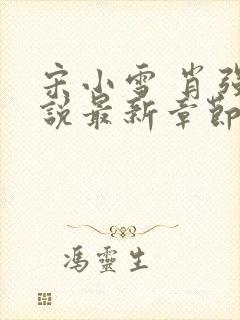 宋小雪 肖强
說最新章節
馮靈生